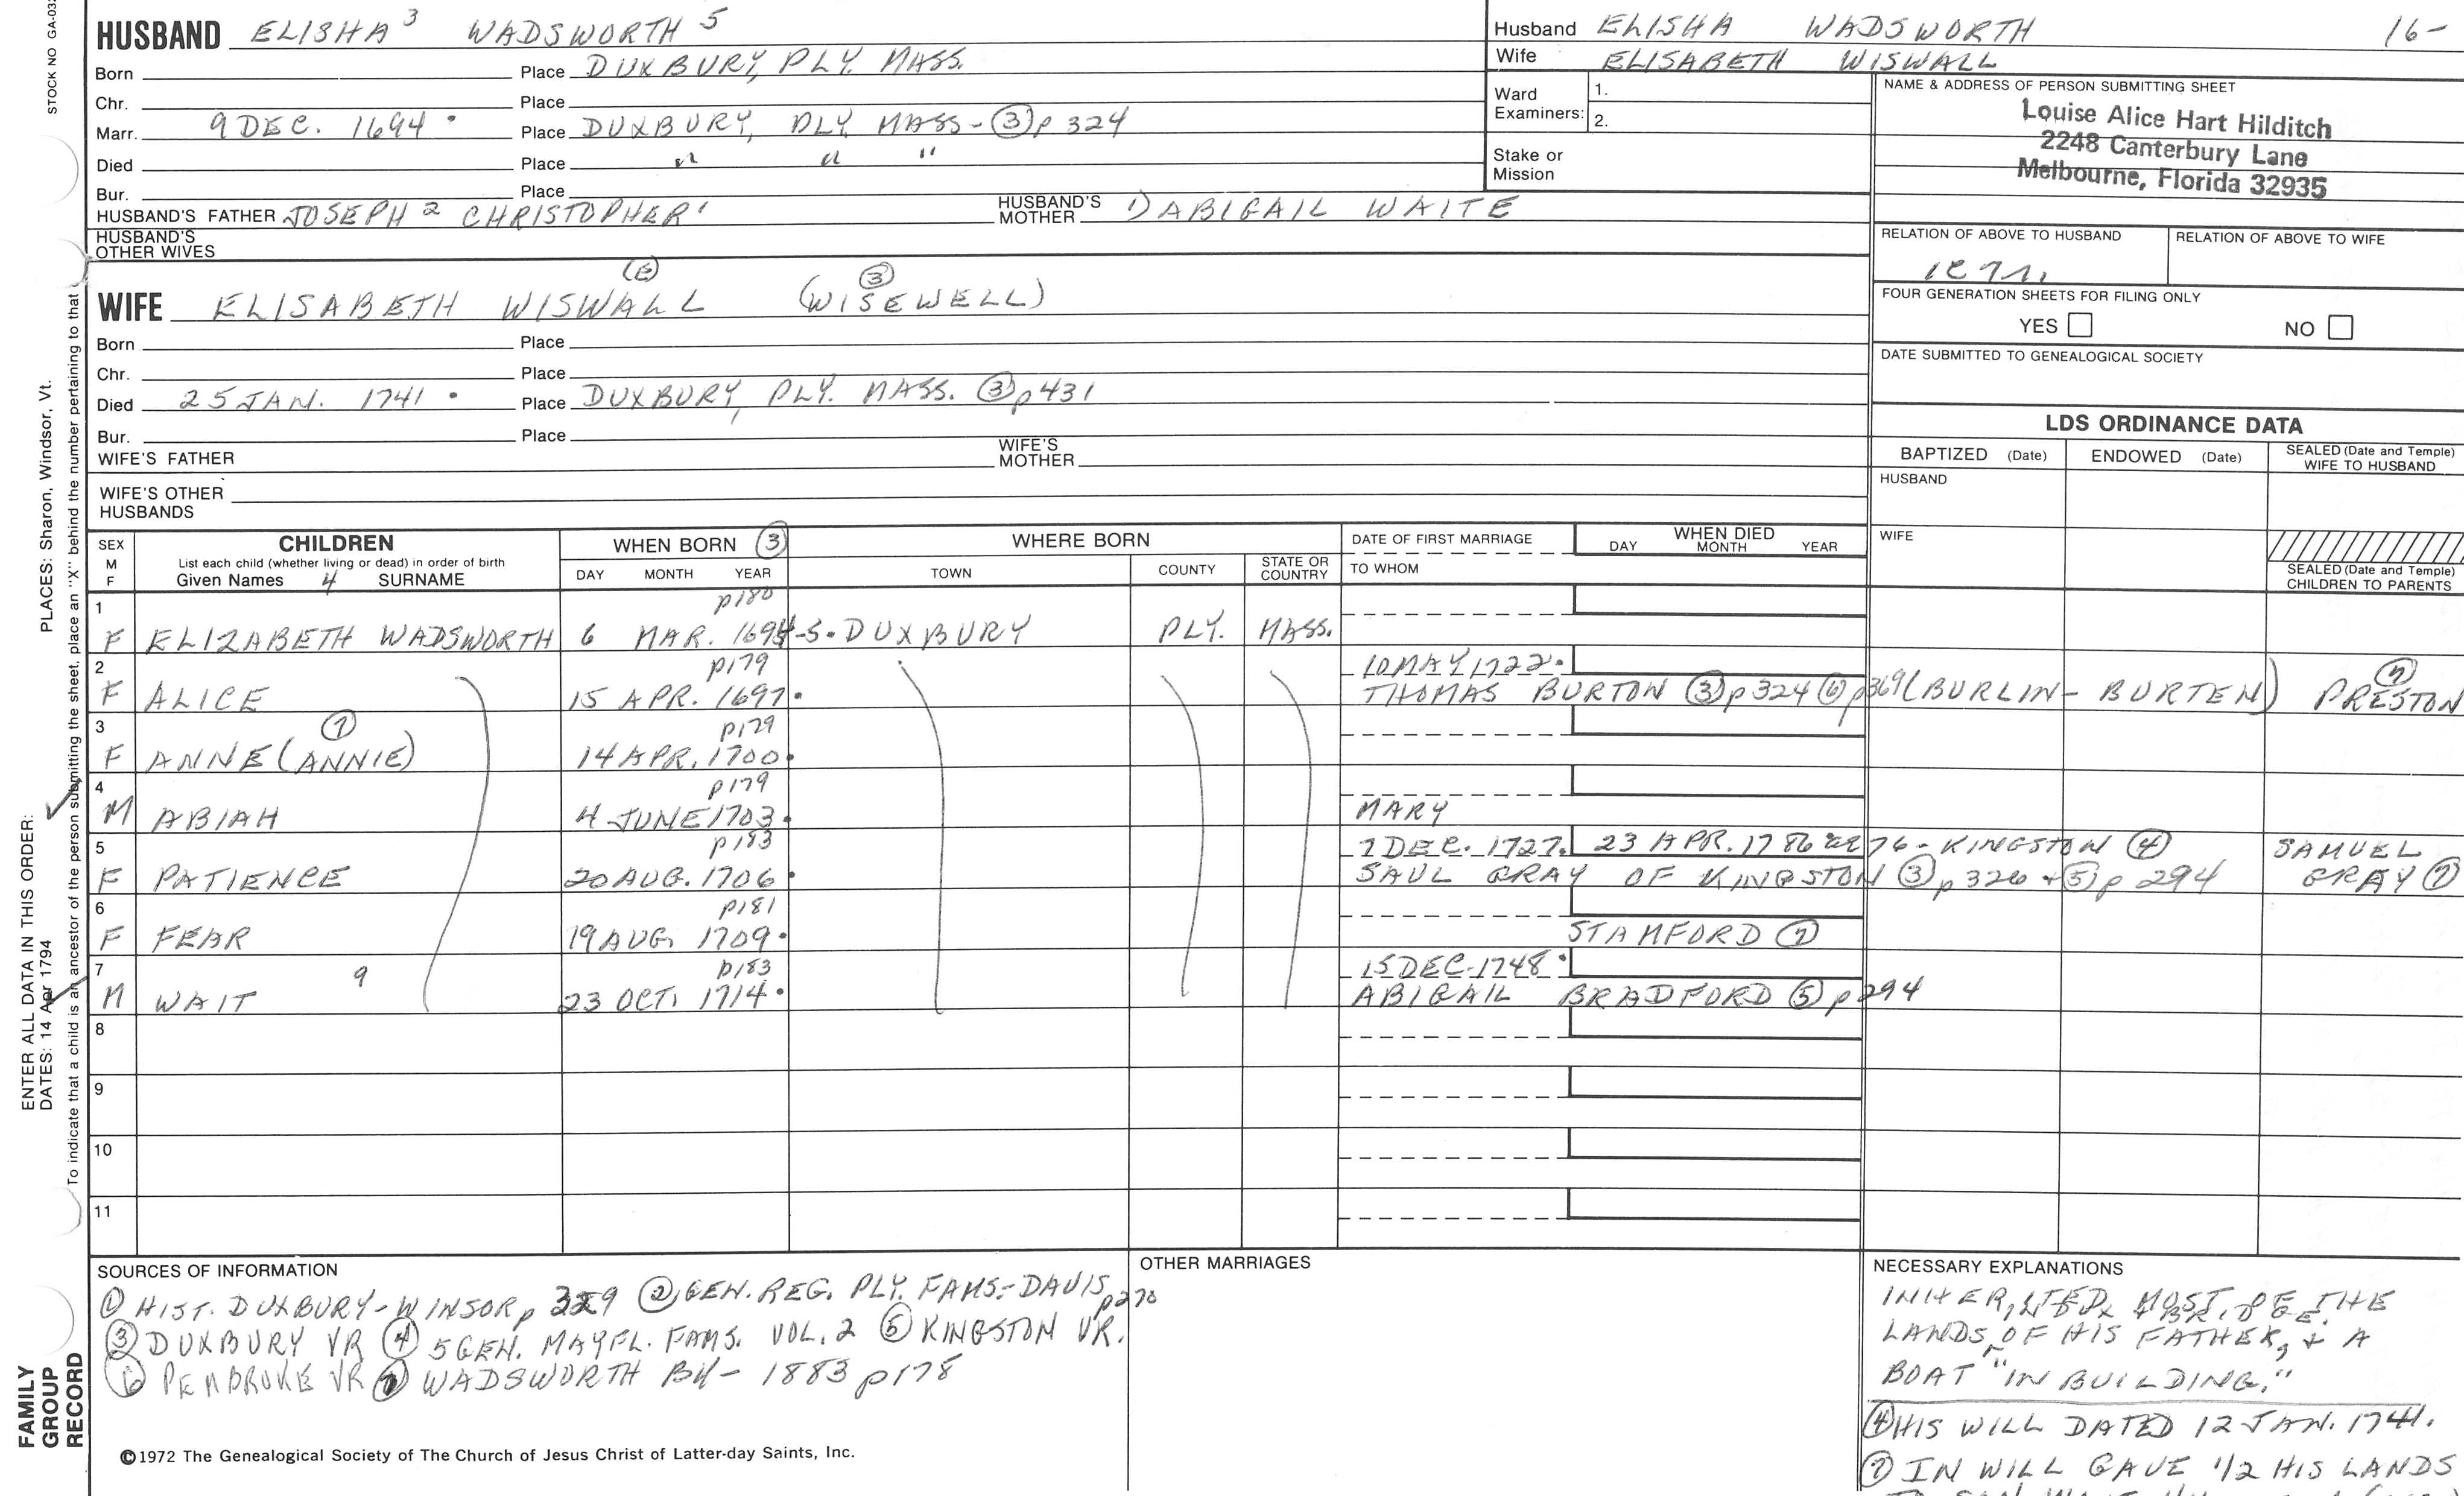 STOCK NO GA-032
HUSBAND ELISHA 3 WADSWORTH 5
Born Place DUXBURY, PLY. MASS.
Chr. Place
Marr. 9 DEC. 1694 • Place DUXBURY, PLY. MASS - ③ p 324
Died Place " " "
Bur. Place
HUSBAND'S FATHER JOSEPH 2 CHRISTOPHER 1 HUSBAND'S MOTHER ABIGAIL WAITE
HUSBAND'S OTHER WIVES
⑥ ③
WIFE ELISABETH WISWALL (WISEWELL)
Born Place
Chr. Place
Died 25 JAN. 1741 • Place DUXBURY, PLY. MASS. ③ p 431
Bur. Place
WIFE'S FATHER WIFE'S MOTHER
WIFE'S OTHER HUSBANDS
Husband ELISHA WADSWORTH 16-
Wife ELISABETH WISWALL
Ward Examiners: 1.
2.
Stake or Mission
NAME & ADDRESS OF PERSON SUBMITTING SHEET
Louise Alice Hart Hilditch
2248 Canterbury Lane
Melbourne, Florida 32935
RELATION OF ABOVE TO HUSBAND RELATION OF ABOVE TO WIFE
FOUR GENERATION SHEETS FOR FILING ONLY
YES NO
DATE SUBMITTED TO GENEALOGICAL SOCIETY
LDS ORDINANCE DATA
BAPTIZED (Date) ENDOWED (Date) SEALED (Date and Temple) WIFE TO HUSBAND
HUSBAND
WIFE
SEALED (Date and Temple) CHILDREN TO PARENTS
SEX M F
CHILDREN
List each child (whether living or dead) in order of birth
Given Names 4 SURNAME
WHEN BORN ③
DAY MONTH YEAR
WHERE BORN
TOWN COUNTY STATE OR COUNTRY
DATE OF FIRST MARRIAGE
TO WHOM
WHEN DIED
DAY MONTH YEAR
1 p180
F ELIZABETH WADSWORTH 6 MAR. 1694-5 • DUXBURY PLY. MASS.
2 p179 10 MAY 1722 •
F ALICE 15 APR. 1697 • THOMAS BURTON ③ p 324 ⑥ p 369 (BURLIN - BURTEN) PRESTON ⑦
3 ⑦ p179
F ANNE (ANNIE) 14 APR. 1700 •
4 p179
M ABIAH 4 JUNE 1703 • MARY
5 p183 7 DEC. 1727 • 23 APR. 1786 ae 76 - KINGSTON ④ SAMUEL
F PATIENCE 20 AUG. 1706 • SAUL GRAY OF KINGSTON ③ p 326 + ⑤ p 294 GRAY ⑦
6 p181
F FEAR 19 AUG. 1709 • STAMFORD ⑦
7 9 p183 15 DEC. 1748 •
M WAIT 23 OCT. 1714 • ABIGAIL BRADFORD ⑤ p 294
8
9
10
11
SOURCES OF INFORMATION
① HIST. DUXBURY - WINSOR p 329 ② GEN. REG. PLY. FAMS. - DAVIS p270
③ DUXBURY VR ④ 5 GEN. MAYFL. FAMS. VOL. 2 ⑤ KINGSTON VR.
⑥ PEMBROKE VR ⑦ WADSWORTH BK - 1883 p178
©1972 The Genealogical Society of The Church of Jesus Christ of Latter-day Saints, Inc.
OTHER MARRIAGES
NECESSARY EXPLANATIONS
INHERITED MOST OF THE
LANDS OF HIS FATHER, + A
BOAT "IN BUILDING."
④ HIS WILL DATED 12 JAN. 1741.
⑦ IN WILL GAVE 1/2 HIS LANDS
ENTER ALL DATA IN THIS ORDER:
DATES: 14 Apr 1794 PLACES: Sharon, Windsor, Vt.
To indicate that a child is an ancestor of the person submitting the sheet, place an "X" behind the number pertaining to that
FAMILY
GROUP
RECORD